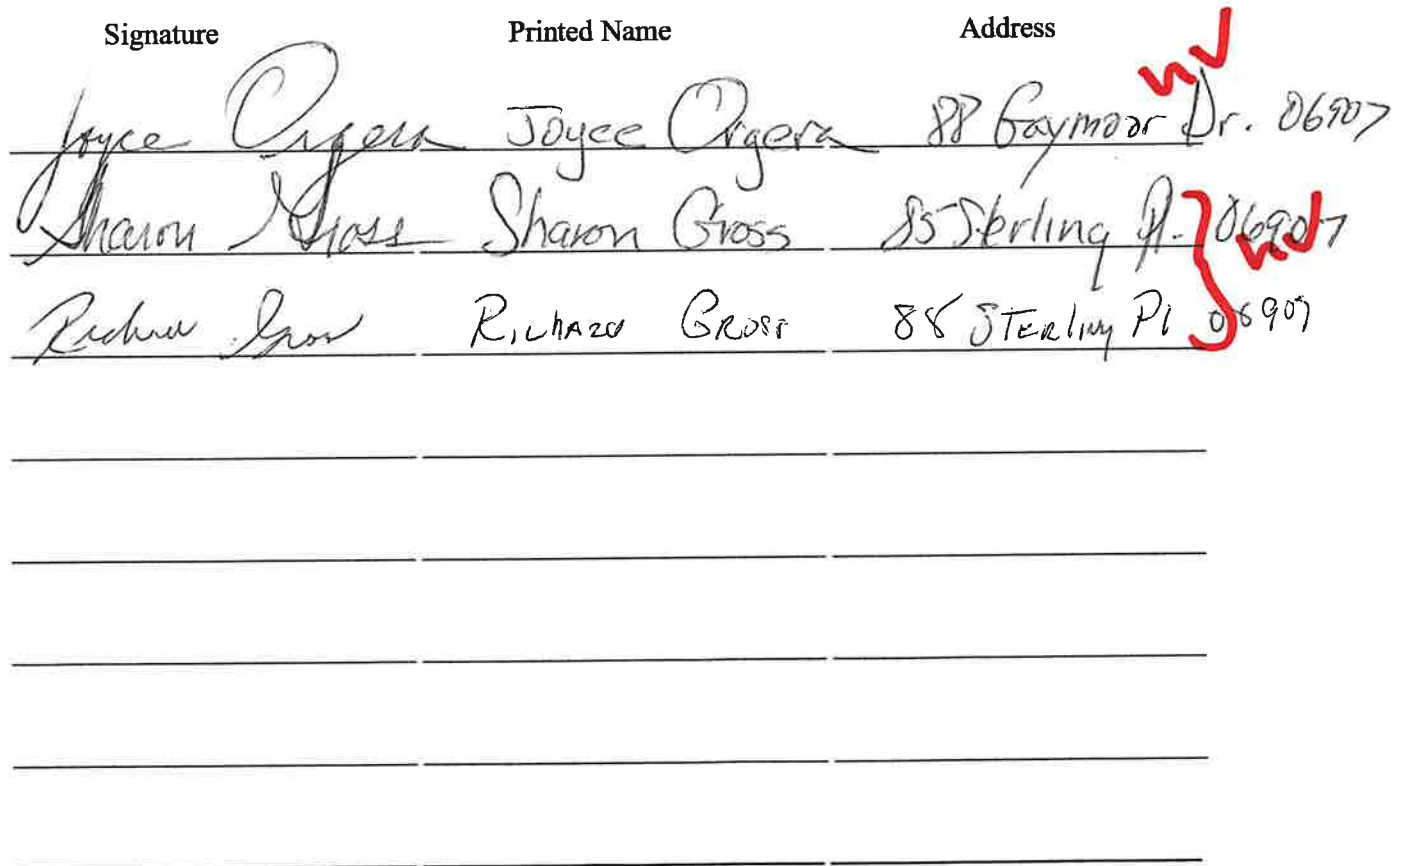 Signature Printed Name Address
nv
Joyce Orgera Joyce Orgera 88 Gaymoor Dr. 06907
Sharon Gross Sharon Gross 85 Sterling Pl. 06907
nv
Richard Gross Richard Gross 88 Sterling Pl 06907